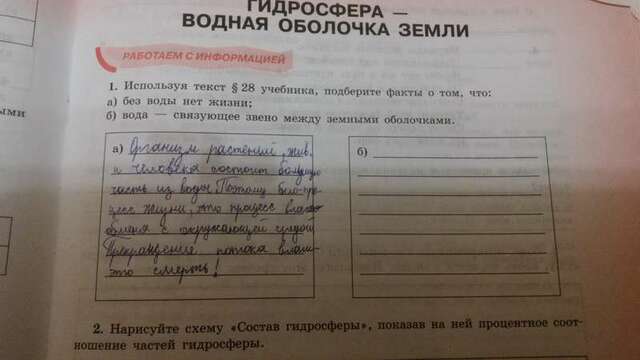 ГИДРОСФЕРА —
ВОДНАЯ ОБОЛОЧКА ЗЕМЛИ
РАБОТАЕМ С ИНФОРМАЦИЕЙ
1. Используя текст § 28 учебника, подберите факты о том, что:
а) без воды нет жизни;
б) вода — связующее звено между земными оболочками.
а) Организм растений, жив.
и человека состоит большую
часть из воды. Поэтому
цесс жизни, это процесс
обмена с окружающей средой
Прекращение потока влаги-
это смерть!
б)
2. Нарисуйте схему «Состав гидросферы», показав на ней процентное соот-
ношение частей гидросферы.
ыми